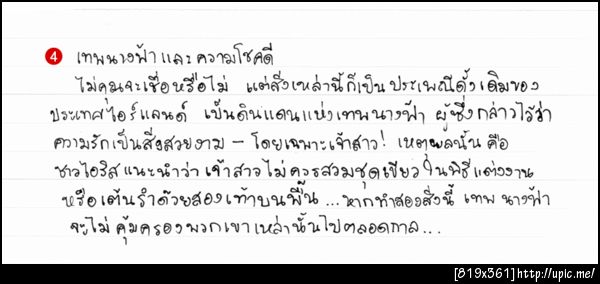 4 เทพนางฟ้าและความโชคดี
ไม่คุณจะเชื่อหรือไม่ แต่สิ่งเหล่านี้ก็เป็นประเพณีดั้งเดิมของ
ประเทศไอร์แลนด์ เป็นดินแดนแห่งเทพนางฟ้า ผู้ซึ่งกล่าวไว้ว่า
ความรักเป็นสิ่งสวยงาม - โดยเฉพาะเจ้าสาว! เหตุผลนั้น คือ
ชาวไอริสแนะนำว่า เจ้าสาวไม่ควรสวมชุดเขียวในพิธีแต่งงาน
หรือเต้นรำด้วยสองเท้าบนพื้น ... หากทำสองสิ่งนี้ เทพนางฟ้า
จะไม่คุ้มครองพวกเขาเหล่านั้นไปตลอดกาล...
[819x361]http://upic.me/